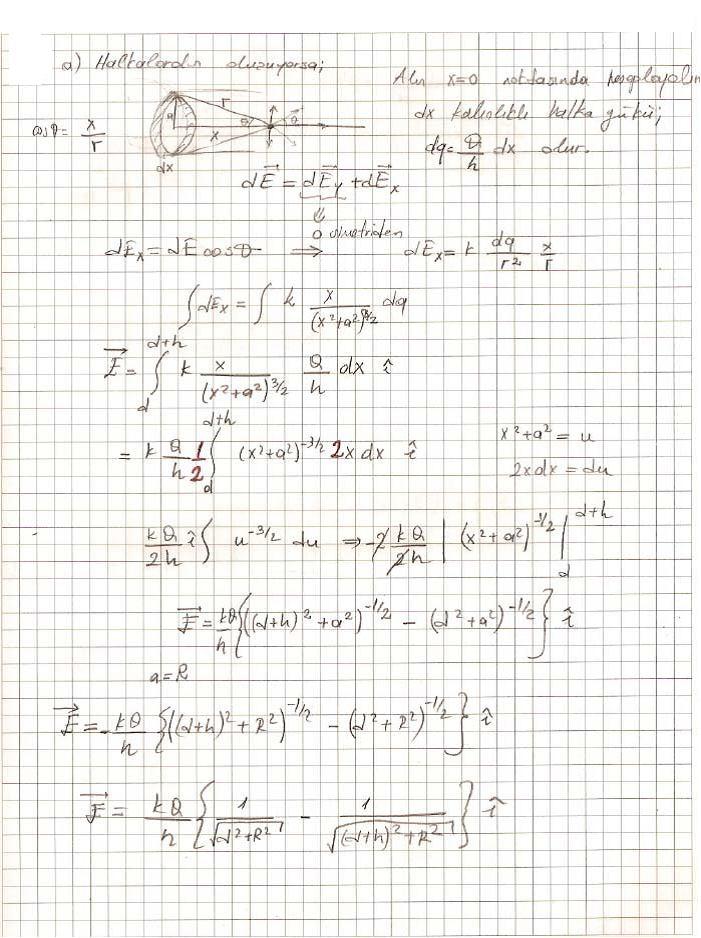 a) Halkalardan oluşuyorsa;
Alan x=0 noktasında hesaplayalım
dx kalınlıklı halka yükü;
dq = Q/h dx olur.
cosθ = x/r
a r θ x θ
dx
dE⃗ = dE⃗y + dE⃗x
⇓
0 simetriden
dE⃗x = dE cosθ ⇒ dE⃗x = k dq/r² x/r
∫dEx = ∫ k x/(x²+a²)^3/2 dq
E⃗ = ∫_d^{d+h} k x/(x²+a²)^3/2 Q/h dx î
= k Q/h 1/2 ∫_d^{d+h} (x²+a²)^-3/2 2x dx î
x²+a² = u
2x dx = du
kQ/2h î ∫ u^-3/2 du ⇒ -2 kQ/2h | (x²+a²)^-1/2 |_d^{d+h}
E⃗ = kQ/h {((d+h)²+a²)^-1/2 - (d²+a²)^-1/2} î
a=R
E⃗ = -kQ/h {((d+h)²+R²)^-1/2 - (d²+R²)^-1/2} î
E⃗ = kQ/h {1/√(d²+R²) - 1/√((d+h)²+R²)} î